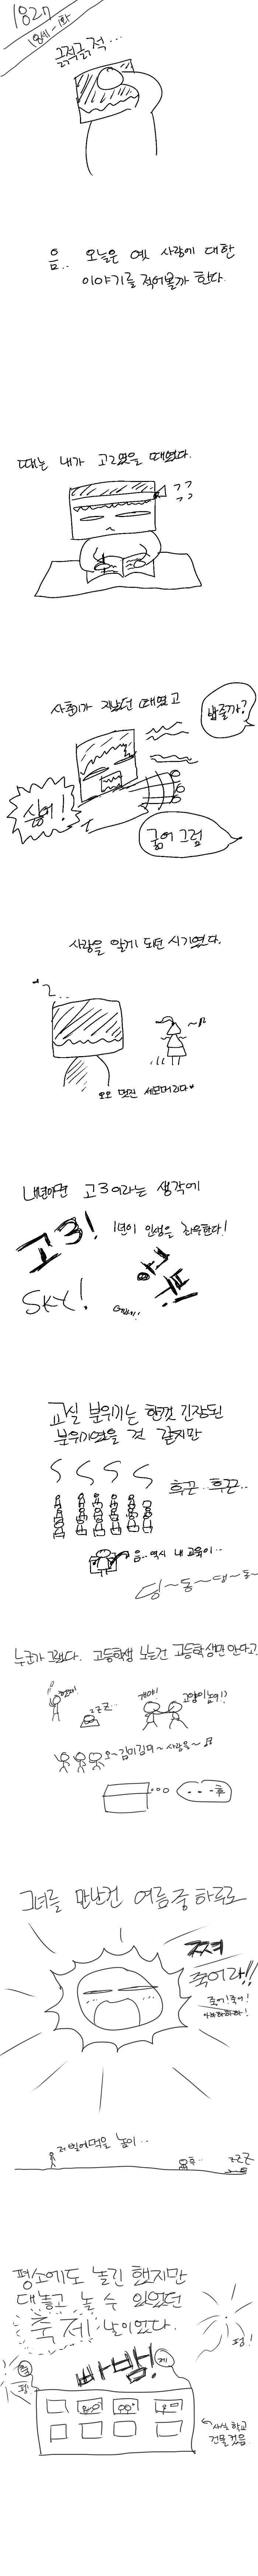 1827
18세-1화
긁적긁적...
음.. 오늘은 옛 사랑에 대한
이야기를 적어볼까 한다.
때는 내가 고2였을 때였다.
ㄱㄱ
ㄱㄱ
사춘기가 지났던 때였고
밥줄까?
싫어!
굶어 그럼
사랑을 알게 되던 시기였다.
오오 멋진 세모머리다♥
내년이면 고3이라는 생각에
고3!
1년이 인생을 좌우한다!
SKY!
공부!
교실 분위기는 한껏 긴장된
분위기였을 것 같지만
후끈..후끈..
음..역시 내 교육이..
딩~동~댕~동~
누군가 그랬다. 고등학생 노는건 고등학생만 안다고?
zzZ...
오~김미김미~사랑을~♫
...휴
그녀를 만난건 여름 중 하루로
쨔
죽어라!!
죽어!죽어!
저 빌어먹을 놈이..
zzZ
평소에도 놀긴 했지만
대놓고 놀 수 있었던
축제 날이었다.
펑!
빠밤!
축
제
펑!
←사실 학교
건물 컸음